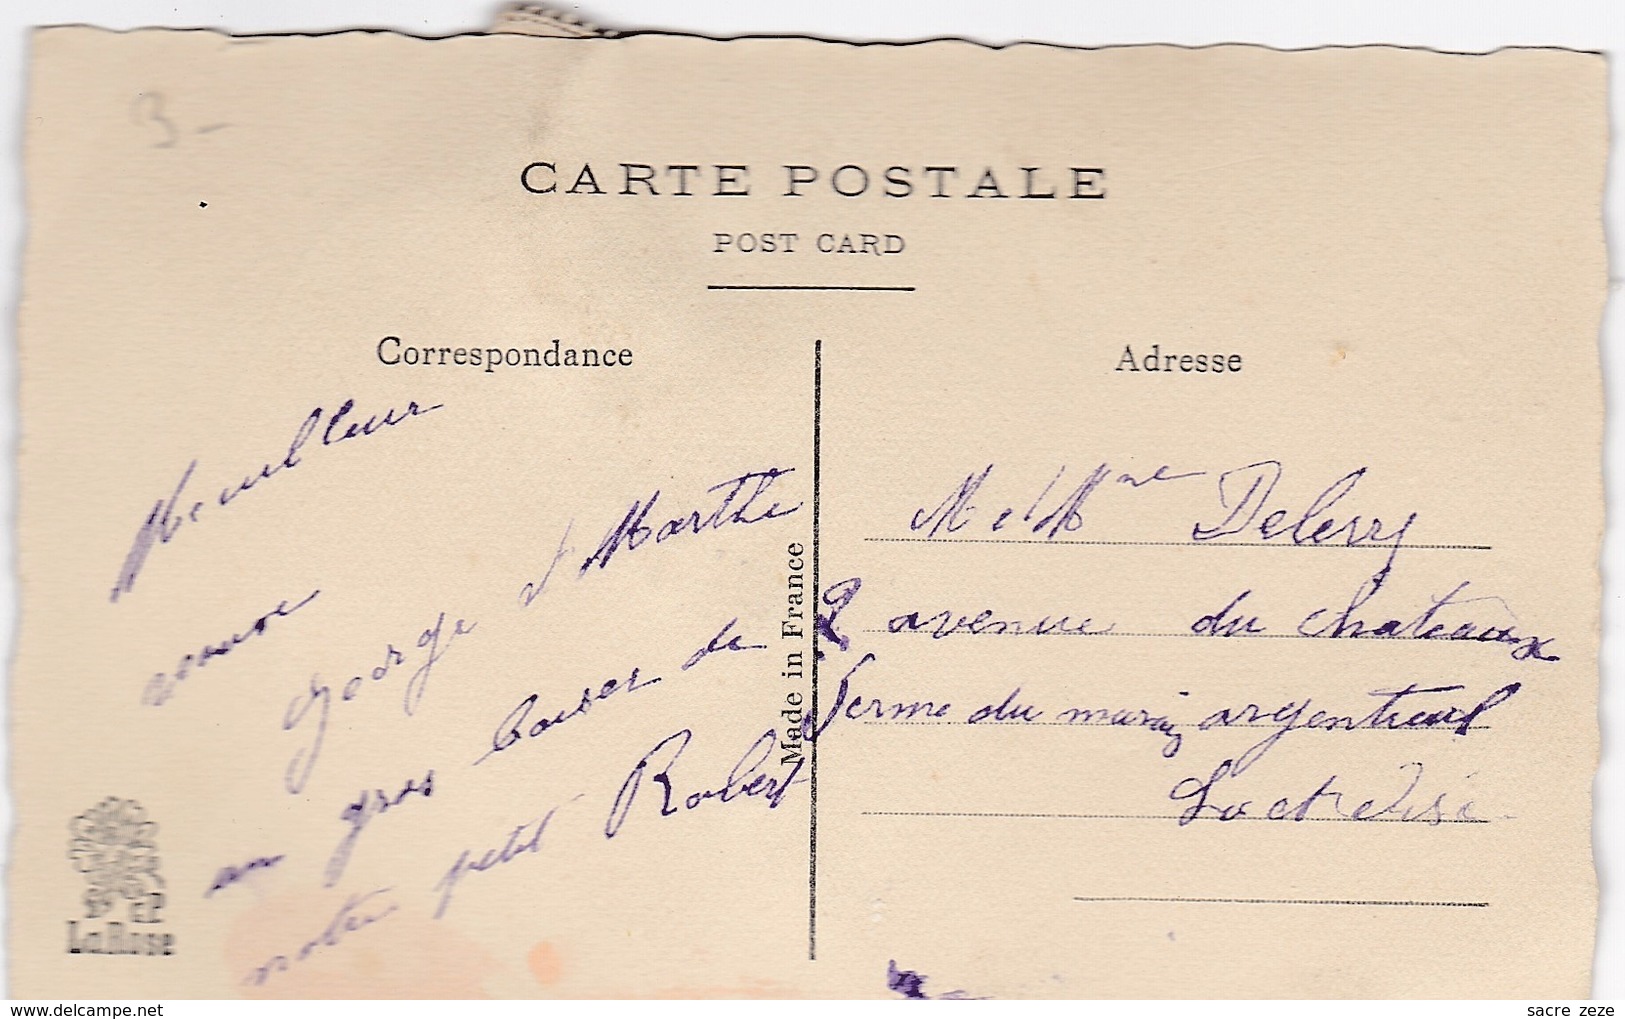 3-
CARTE POSTALE
POST CARD
Correspondance
Meuilleur
George et Marthe
un gros baiser de
notre petit Robert
La Rose
Made in France
Adresse
M et Mme Delerry
2 avenue du chateaux
ferme du marais argenteuil
S et Oise
delcampe.net
sacre zeze